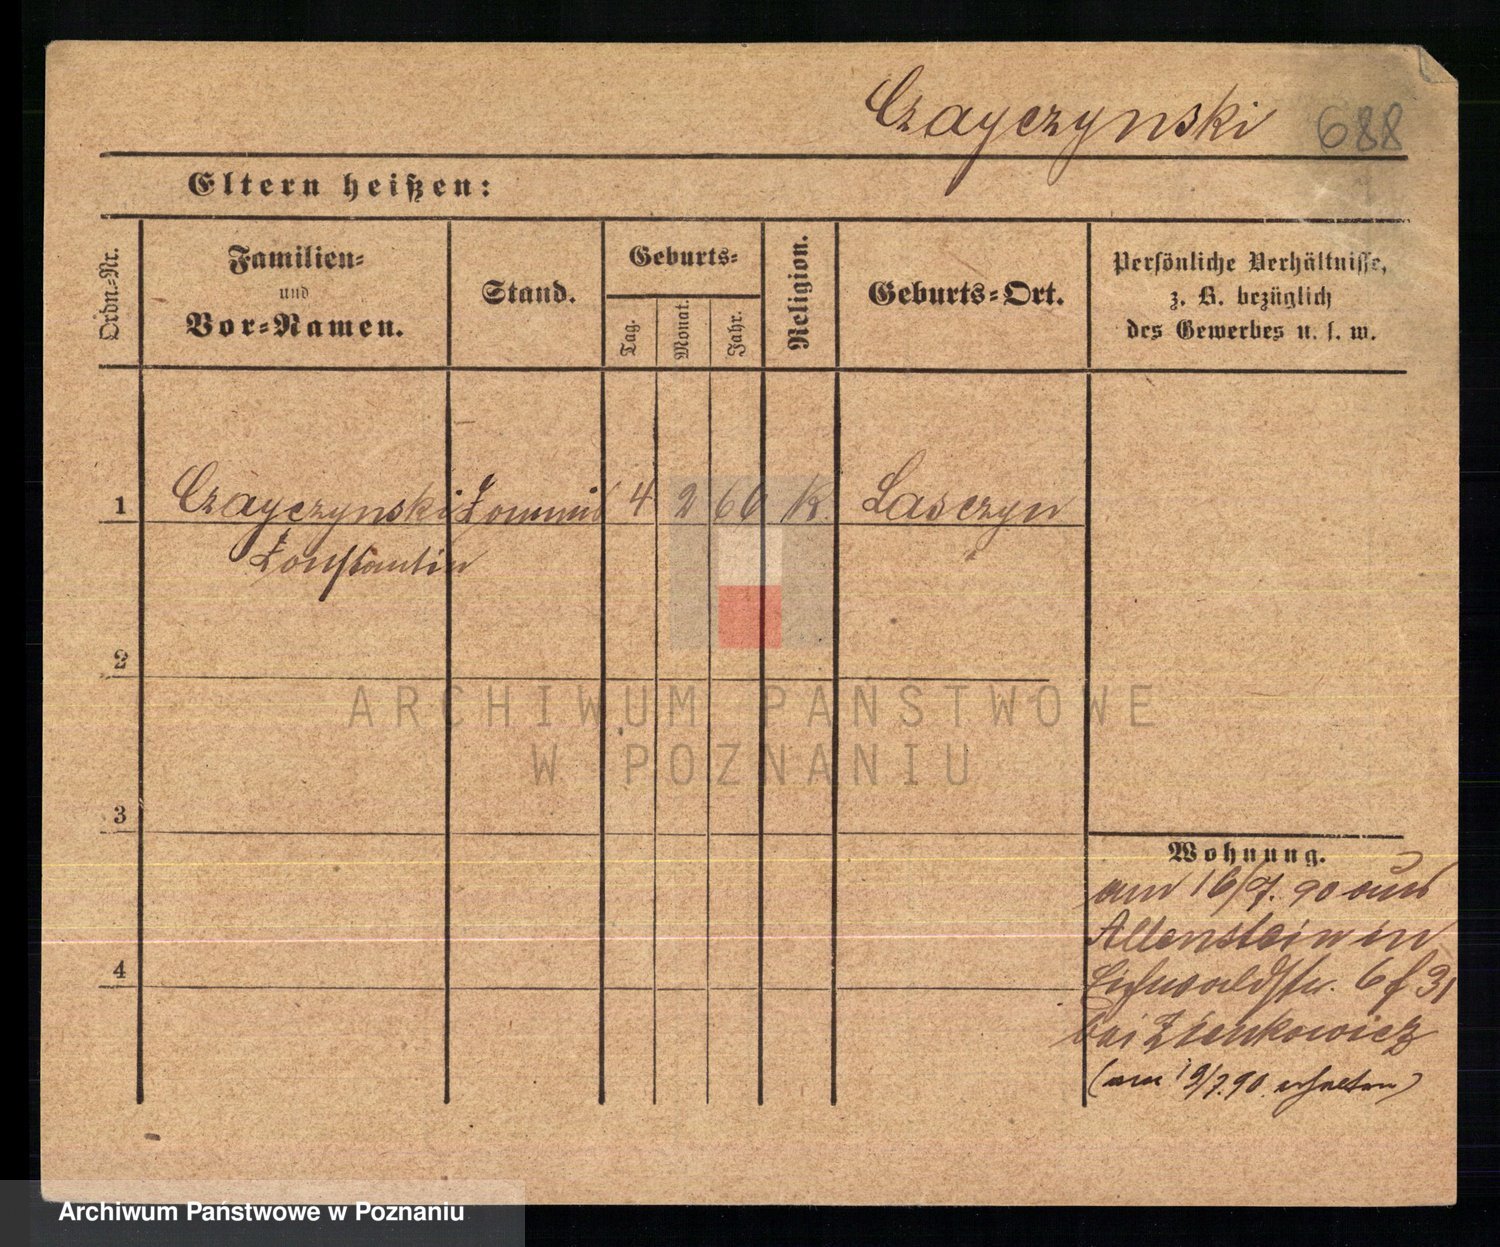 Czayczynski 688
Eltern heißen:
Ordn.-Nr.
Familien-
und
Vor-Namen.
Stand.
Geburts-
Tag.
Monat.
Jahr.
Religion.
Geburts-Ort.
Persönliche Verhältnisse,
z. B. bezüglich
des Gewerbes u. s. w.
1 Czayczynski Kommis 4 2 60 K. Lasczyn
Konstantin
2
3
4
Wohnung.
am 16/7. 90 aus
Allenstein in
Eichwaldstr. 31
bei Zienkowicz
(am 19/7.90. erhalten)
ARCHIWUM PAŃSTWOWE
W POZNANIU
Archiwum Państwowe w Poznaniu